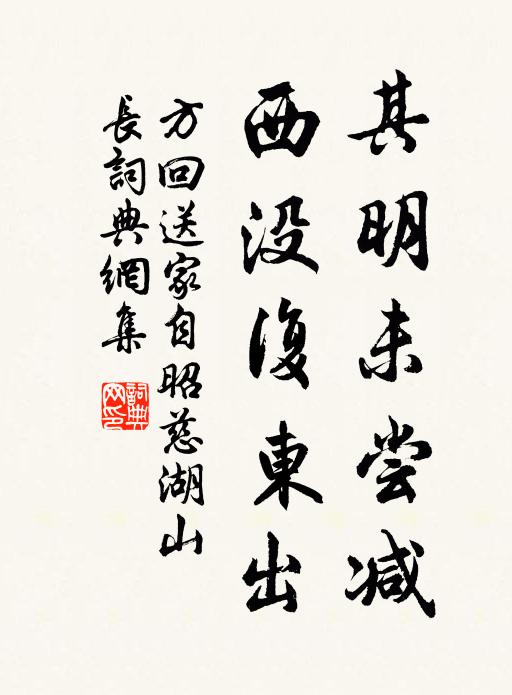 其明未尝减
西没復東出
方回送家自昭慈湖山
長詞典網集
詞典網印